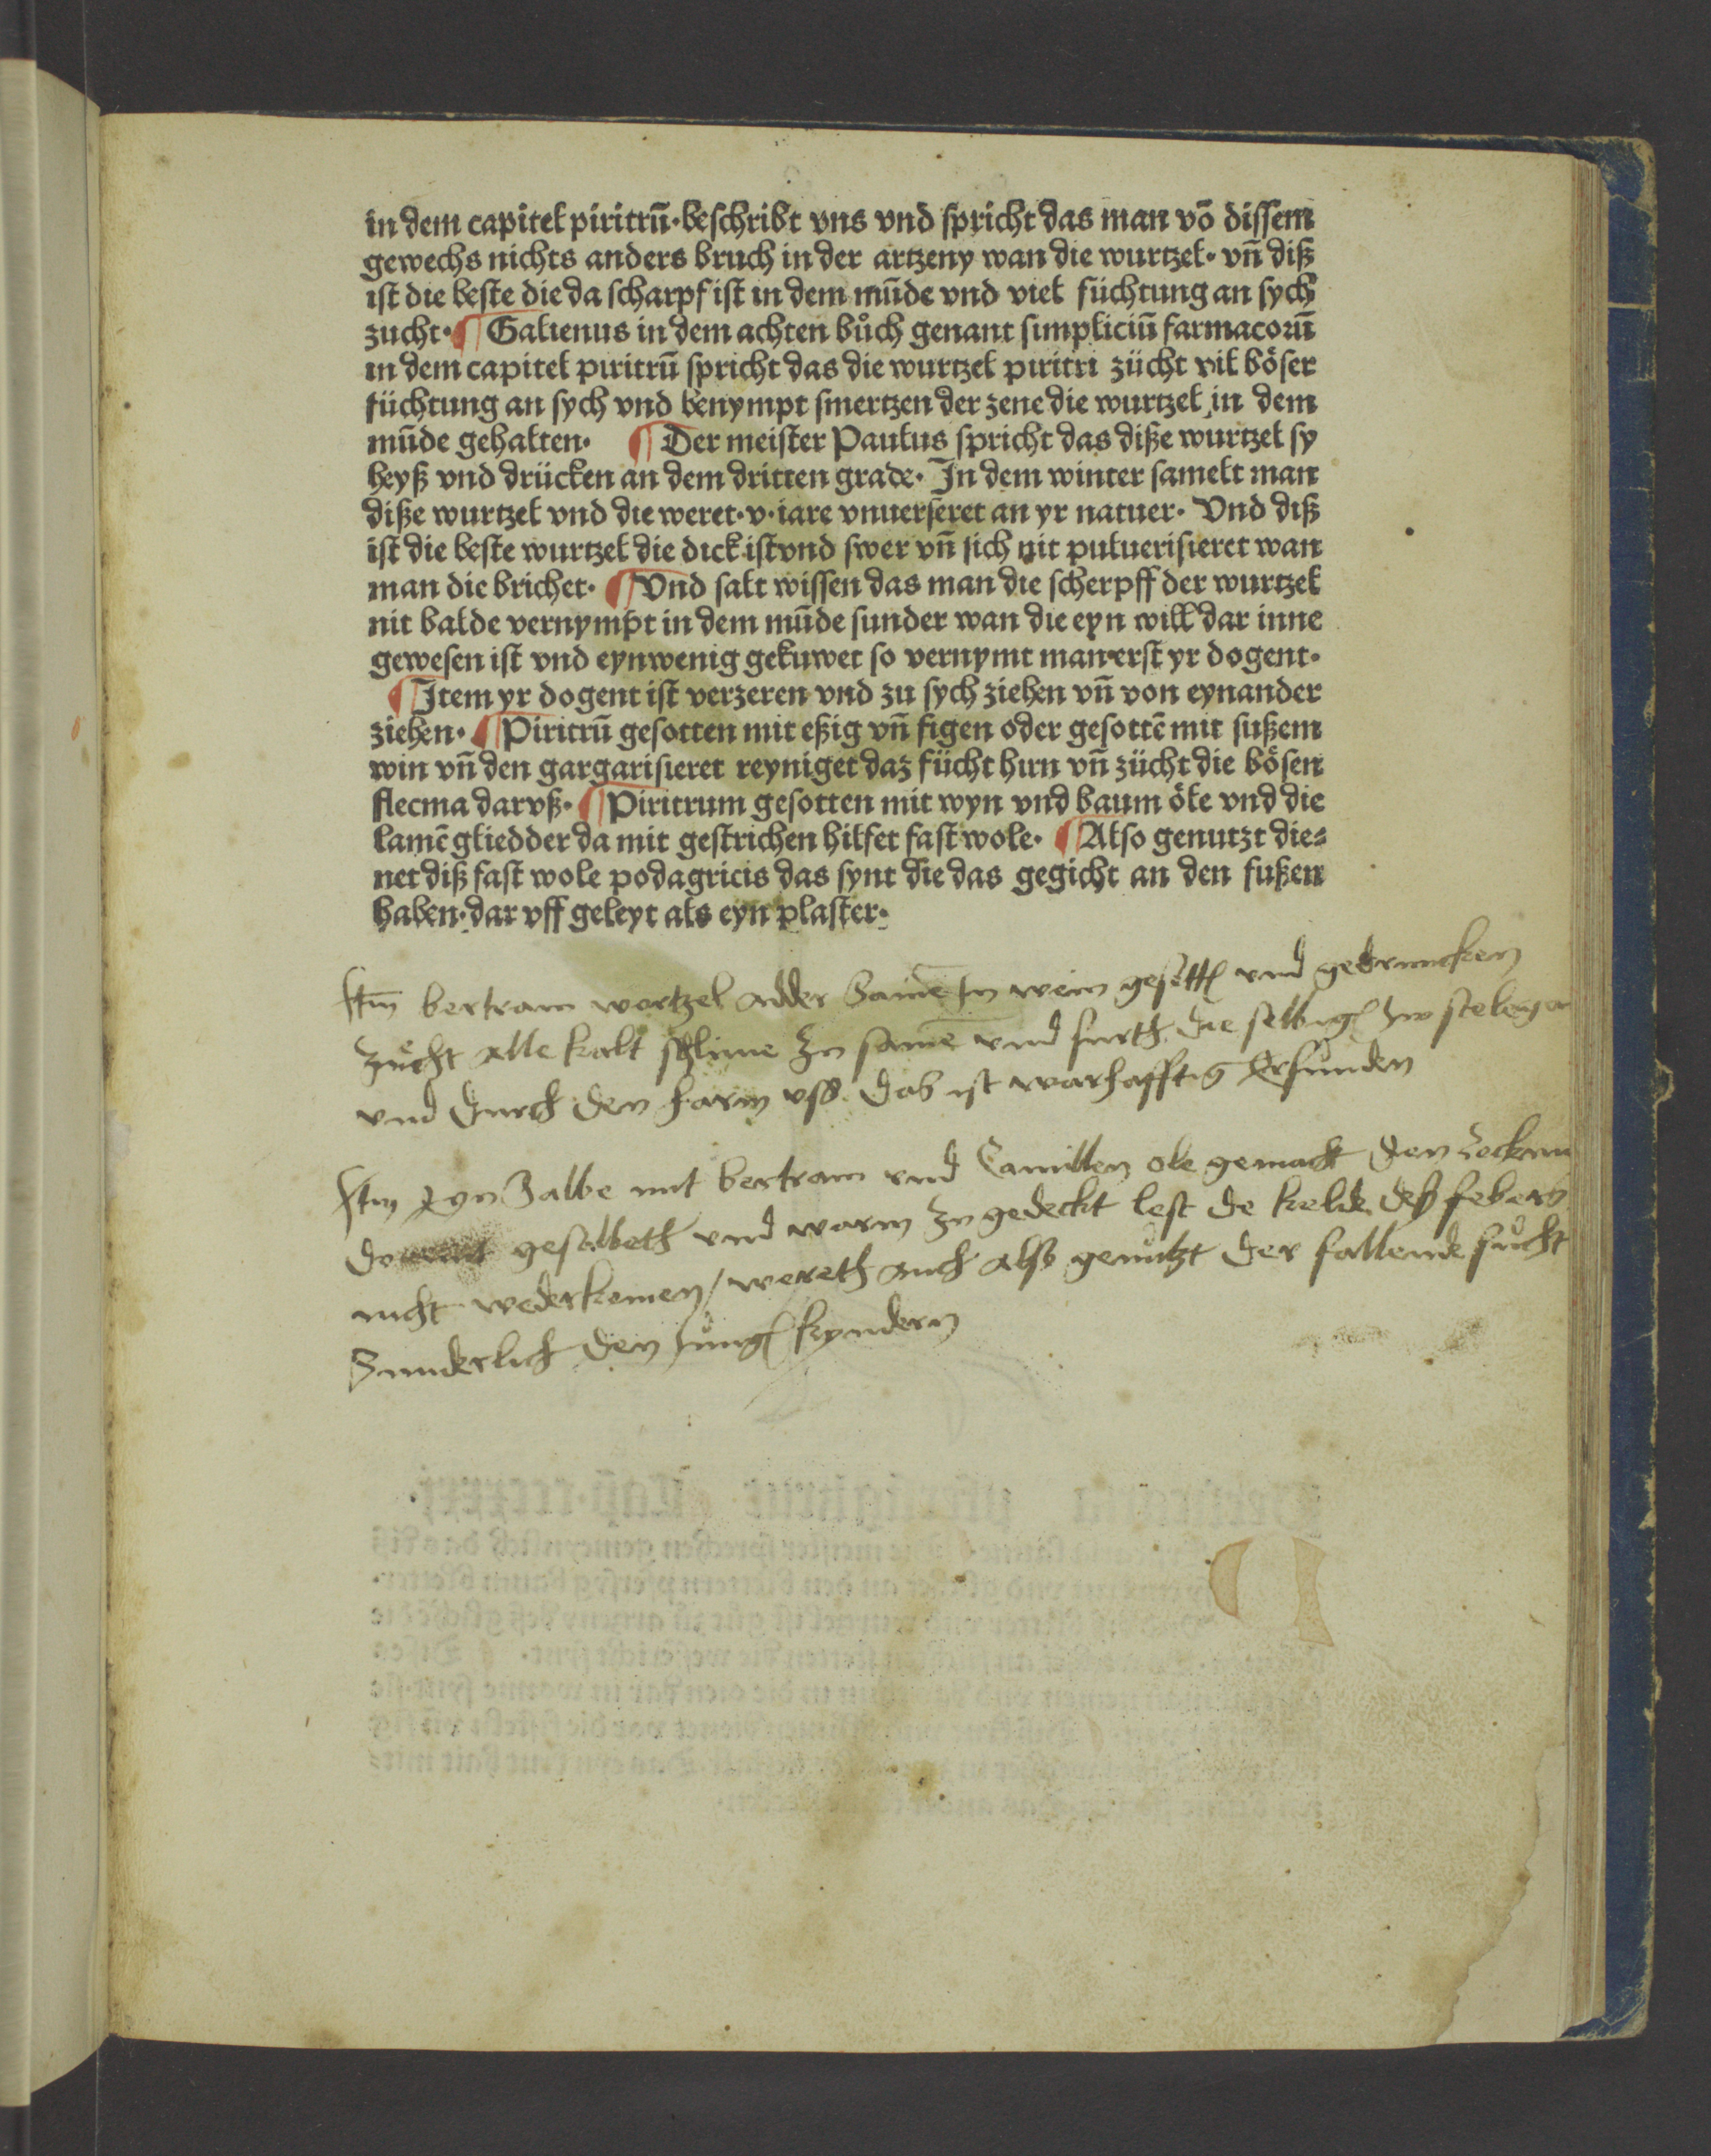 in dem capitel piritrū·beschribt vns vnd spricht das man vō dissem
gewechs nichts anders bruch in der artzeny wan die wurtzel· vn̄ diß
ist die beste die da scharpf ist in dem mūde vnd viel füchtung an sych
zucht·¶ Galienus in dem achten bůch genant simpliciū farmacorū
in dem capitel piritrū spricht das die wurtzel piritri zücht vil böser
füchtung an sych vnd benympt smertzen der zene die wurtzel in dem
mūde gehalten· ¶ Der meister Paulus spricht das diße wurtzel sy
heyß vnd drücken an dem dritten grade· In dem winter samelt man
diße wurtzel vnd die weret·v·iare vnuerseret an yr natuer· Vnd diß
ist die beste wurtzel die dick ist vnd swer vn̄ sich nit puluerisieret wan
man die brichet· ¶ Vnd salt wissen das man die scherpff der wurtzel
nit balde vernympt in dem mūde sunder wan die eyn will dar inne
gewesen ist vnd eyn wenig gekuwet so vernymt man erst yr dogent·
¶ Item yr dogent ist verzeren vnd zu sych ziehen vn̄ von eynander
ziehen· ¶ Piritrū gesotten mit eßig vn̄ figen oder gesottē mit sußem
win vn̄ den gargarisieret reyniget daz fücht hirn vn̄ zücht die bösen
flecma dar vß· ¶ Piritrum gesotten mit wyn vnd baum öle vnd die
lamē gliedder da mit gestrichen hilfet fast wole· ¶ Also genutzt die⸗
net diß fast wole podagricis das synt die das gegicht an den fußen
haben·dar vff geleyt als eyn plaster·
Itm̄ bertram wortzel adder Samē In wein gesottē vnd gedruncken
Zůcht alle kalt schlime Zu samē vnd furth die selbigē
vnd durch den harm vß. das ist warhafftig Erfunden
Itm Eyn Salbe mit bertram vnd Camillen ole gemacht den
gesalbeth vnd warm Zu gedeckt lest de kelde deß febers
nicht wederkomen / wereth auch also genůtzt der fallende sůcht
Sunderlich den Jungē kyndern